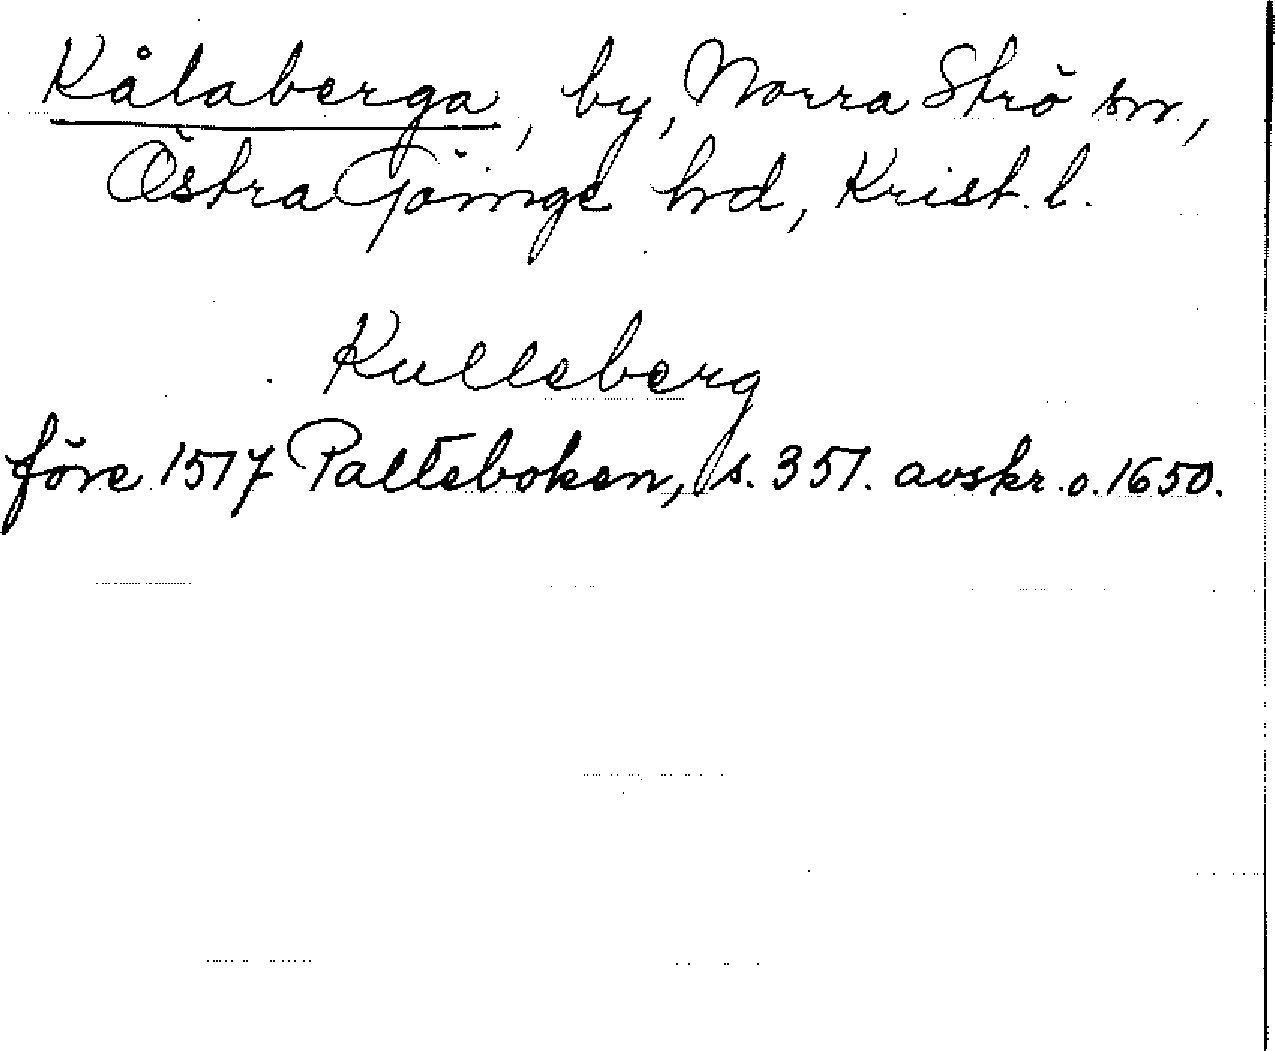 Kålaberga, by, Norra Strö sn,
Östra Göinge hrd, Krist. l.
Kulleberg
före 1517 Palteboken, s. 351. avskr. o. 1650.